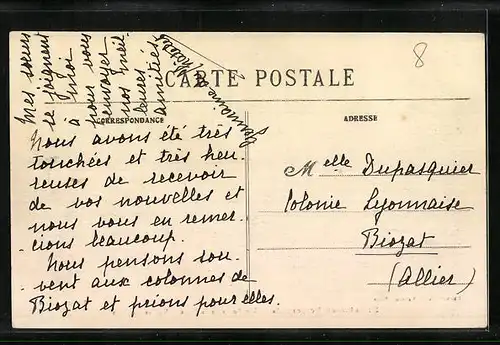 8
CARTE POSTALE
CORRESPONDANCE
ADRESSE
Nous avons été très
touchées et très heu-
reuses de recevoir
de vos nouvelles et
nous vous en remer-
cions beaucoup.
Nous pensons sou-
vent aux colonnes de
Biozat et prions pour elles.
Mes sœurs
se joignent
à moi
pour vous
envoyer
nos meil-
leures
amitiés.
Germaine
Melle Dupasquier
Colonie Lyonnaise
Biozat
(Allier)